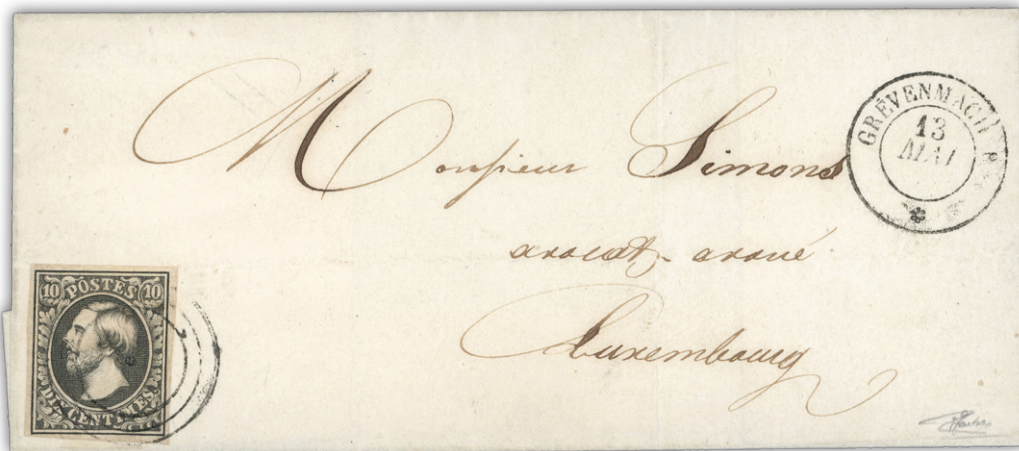 Monsieur Simons
avocat-avoué
Luxembourg
GRÉVENMACH R
13
MAI
10 POSTES 10
DIX CENTIMES